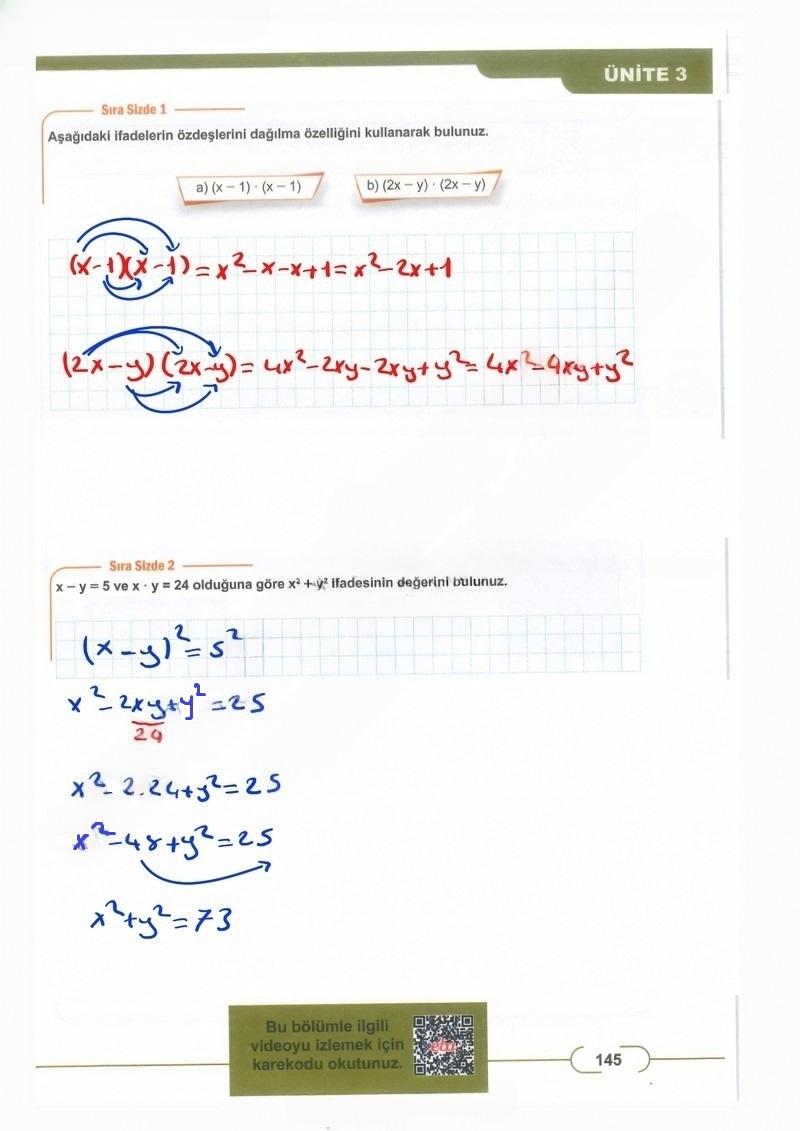 ÜNİTE 3
Sıra Sizde 1
Aşağıdaki ifadelerin özdeşlerini dağılma özelliğini kullanarak bulunuz.
a) (x – 1) · (x – 1)
b) (2x – y) · (2x – y)
(x-1)(x-1) = x²-x-x+1 = x²-2x+1
(2x-y)(2x-y) = 4x²-2xy-2xy+y² = 4x²-4xy+y²
Sıra Sizde 2
x – y = 5 ve x · y = 24 olduğuna göre x² + y² ifadesinin değerini bulunuz.
(x-y)² = 5²
x²-2xy+y² = 25
24
x²-2.24+y² = 25
x²-48+y² = 25
x²+y² = 73
Bu bölümle ilgili
videoyu izlemek için
karekodu okutunuz.
eba
145